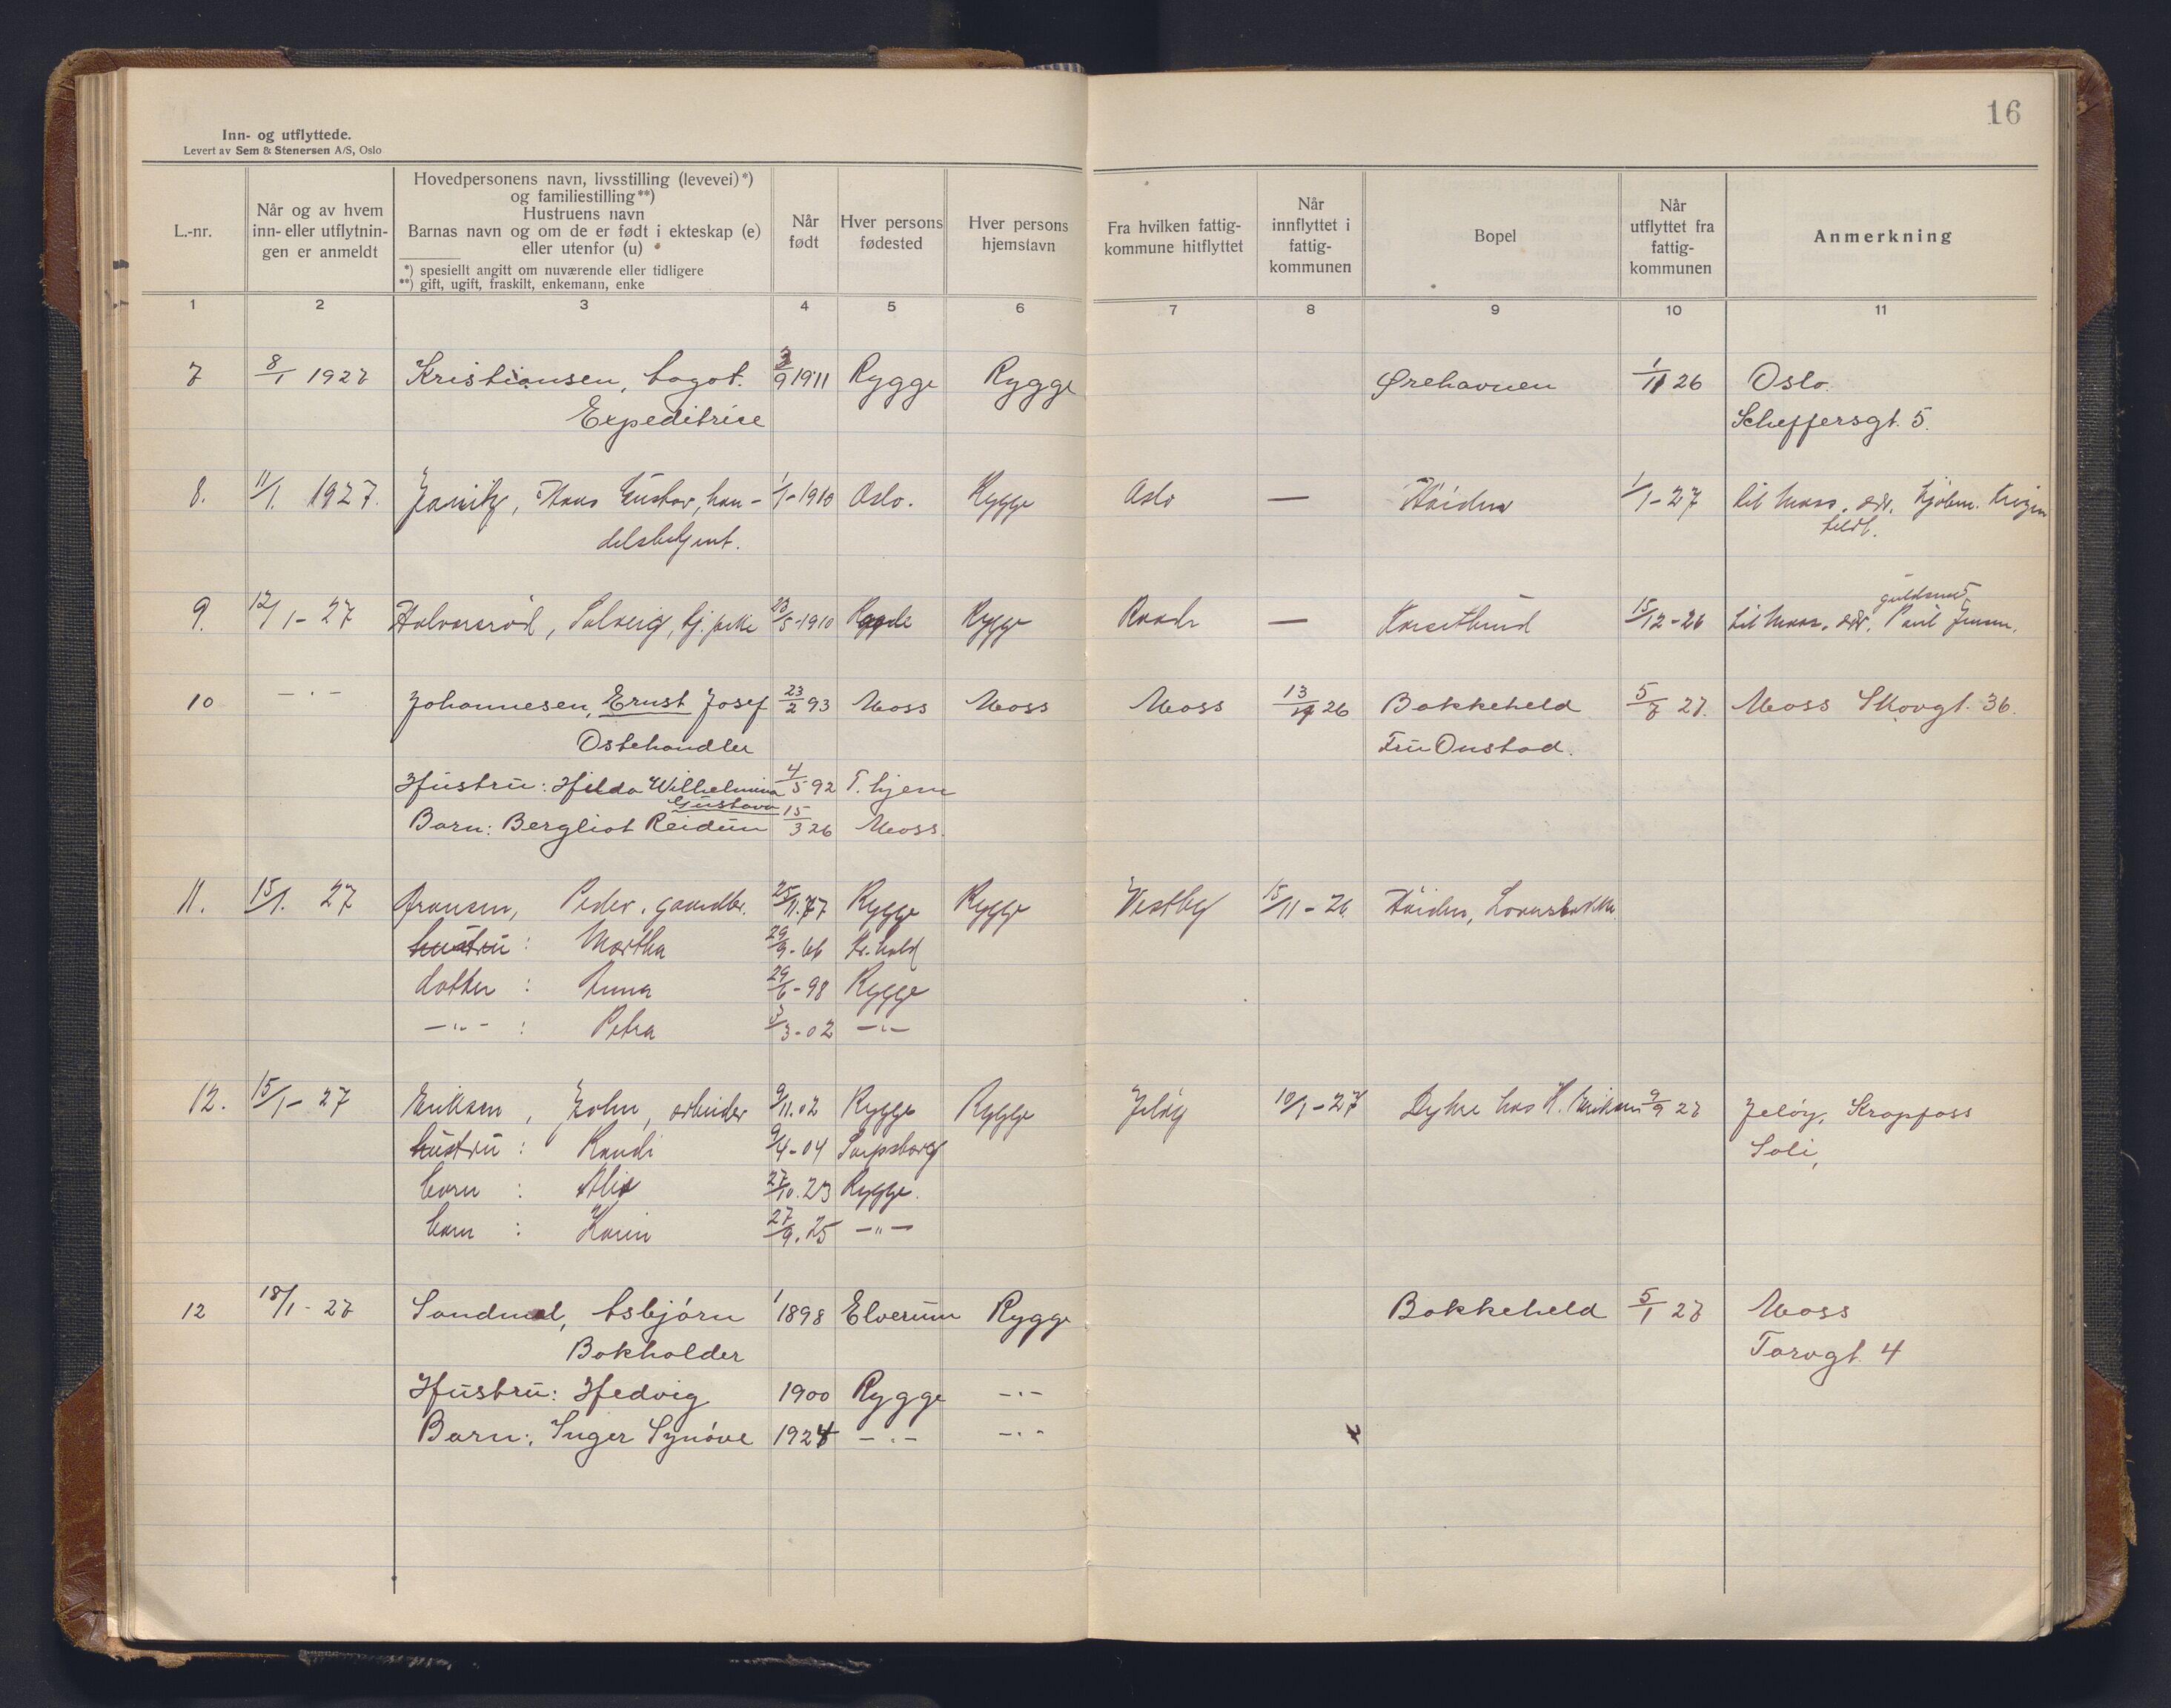 16
Inn- og utflyttede.
Levert av Sem & Stenersen A/S, Oslo
L.-nr.
Når og av hvem
inn- eller utflytnin-
gen er anmeldt
Hovedpersonens navn, livsstilling (levevei)*)
og familiestilling**)
Hustruens navn
Barnas navn og om de er født i ekteskap (e)
eller utenfor (u)
*) spesiellt angitt om nuværende eller tidligere
**) gift, ugift, fraskilt, enkemann, enke
Når
født
Hver persons
fødested
Hver persons
hjemstavn
Fra hvilken fattig-
kommune hitflyttet
Når
innflyttet i
fattig-
kommunen
Bopel
Når
utflyttet fra
fattig-
kommunen
Anmerkning
1 2 3 4 5 6 7 8 9 10 11
7 8/1 1927 Kristiansen, Aagot. 3/9 1911 Rygge Rygge Ørehavnen 1/11 26 Oslo.
Expeditrice Scheffersgt. 5.
8. 11/1. 1927. Hans Gustav, han- 1/1-1910 Oslo. Rygge Oslo — Høiden 1/1-27 til Moss, adr.
delsbetjent.
9. 12/1-27 Halvorsrød, Solveig, tj. pike 23/5-1910 Rygge Raade — 15/12-26 til Moss, adr. Paul Jensen.
guldsmed
10 -"- Johannesen, Ernst Josef 23/2 93 Moss Moss Moss 13/ 26 Bakkeheld 5/8 27. Moss Skovgt. 36.
Ostehandler Fru Onstad.
Hustru: Hilda Wilhelmina 4/5 92 T. hjem
Gustava
Barn: Bergliot Reidun 15/3 26 Moss.
11. 15/1. 27 Fransen, Peder. gaardbr. 25/11.77 Rygge Rygge Vestby 15/11-26 Høiden,
hustru: Martha 29/9-66
datter: Anna 29/6-98 Rygge
-"-: Petra 3/3-02 -"-
12. 15/1-27 Eriksen, John, arbeider 9/11.02 Rygge Rygge Jeløy 10/1-27 Dyhre hos H. Eriksen 9/9 27 Jeløy, Krapfoss
hustru: Randi 9/4-04 Sarpsborg Soli,
barn: Alis 27/10.23 Rygge.
barn: Karin 27/9.25 -"-
12 18/1-27 Sandmæl, Asbjørn 1898 Elverum Rygge Bakkeheld 5/1 27 Moss
Bokholder Torvgt. 4
Hustru: Hedvig 1900 Rygge -"-
Barn: Inger Synøve 1924 -"- -"-